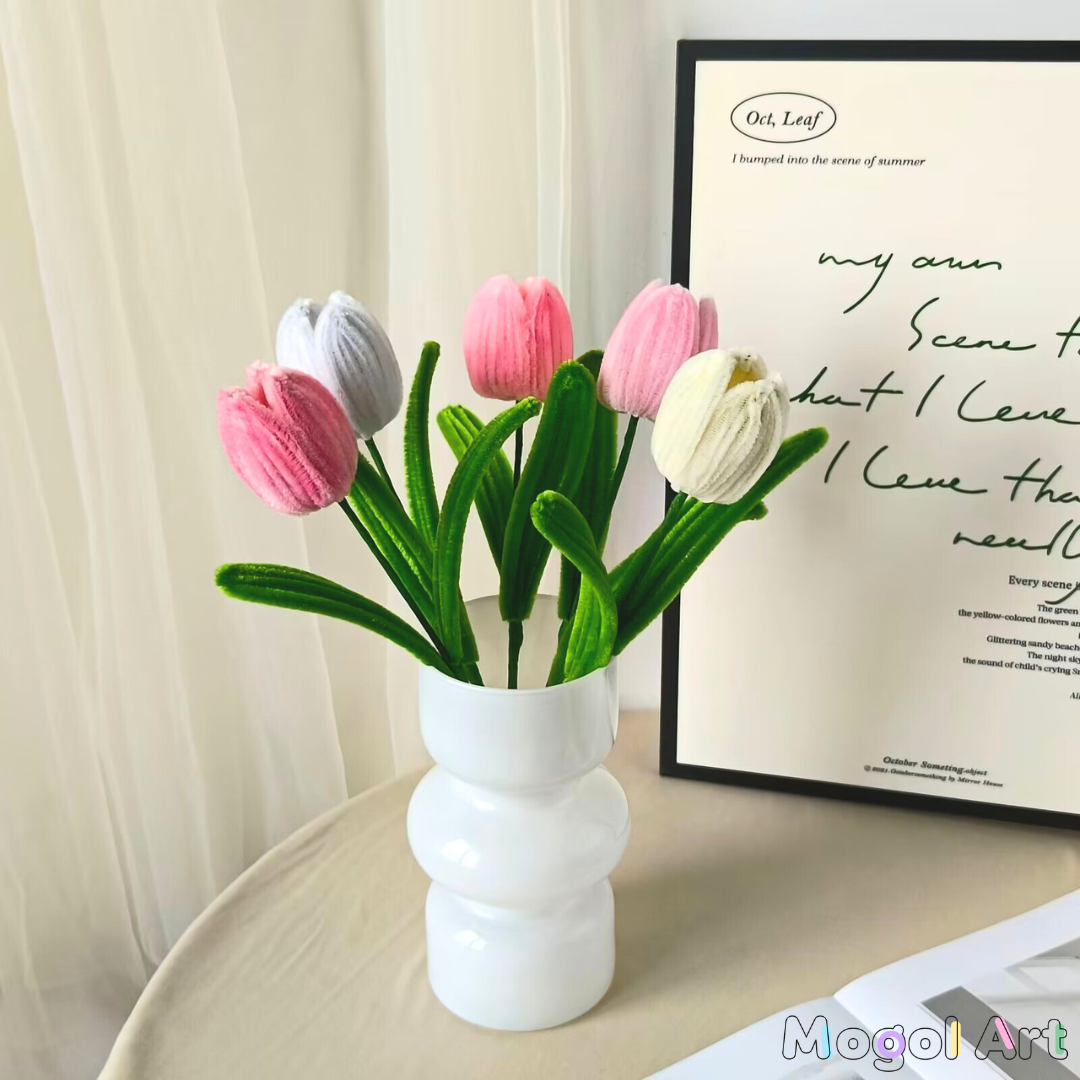 Oct, Leaf
I bumped into the scene of summer
my own
Scene
that I Leve
I Leve tha
Every scene
The green
the yellow-colored flowers an
Glittering sandy beach
The night sky
the sound of child's crying
October Someting-object
© 2021. Octobersomething by Mirror House
Mogol Art